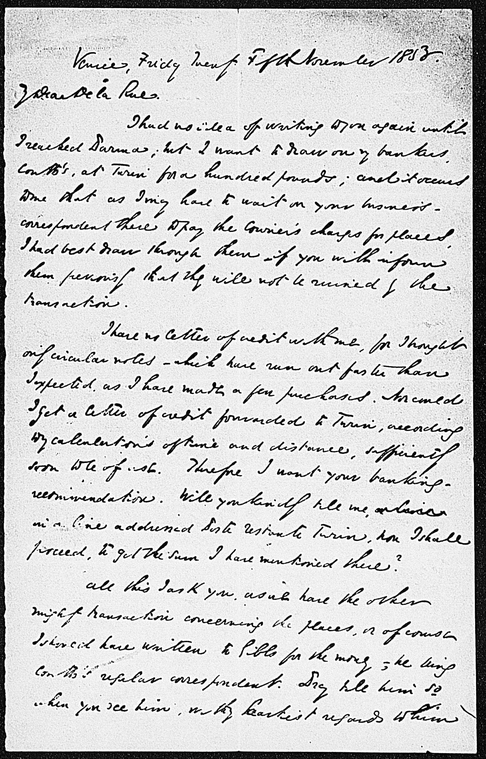 Venice, Friday Twenty Fifth November 1853.
My dear De la Rue.
I had no idea of writing to you again until
I reached Parma; but I want to draw on my bankers,
Coutts's, at Turin for a hundred pounds; and it occurs
to me that as I may have to wait on your business-
correspondent there to pay the Courier's charges for places,
I had best draw through them if you will inform
them previously that they will not be ruined by the
transaction.
I have no letter of credit with me, for I brought
only circular notes - which have run out faster than
I expected, as I have made a few purchases. Nor could
I get a letter of credit forwarded to Turin, according
to my calculations of time and distance, sufficiently
soon to be of use. Therefore I want your banking-
recommendation. Will you kindly tell me,
in a line addressed Poste restante Turin, how I shall
proceed, to get the sum I have mentioned there?
All this I ask you, as we have the other
mighty transaction concerning the places, or of course
I should have written to Gibbs for the money - he being
Coutts's regular correspondent. Pray tell him so
when you see him, with my heartiest regards to him